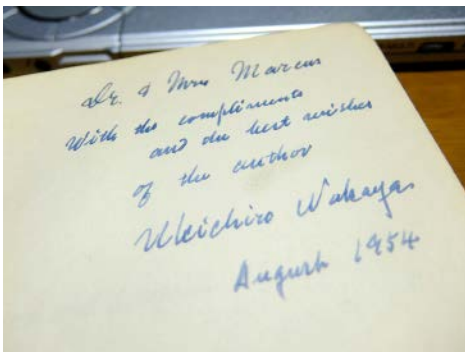 Dr. & Mrs Marcus
With the compliments
and the best wishes
of the author
Ukichiro Nakaya
August 1954